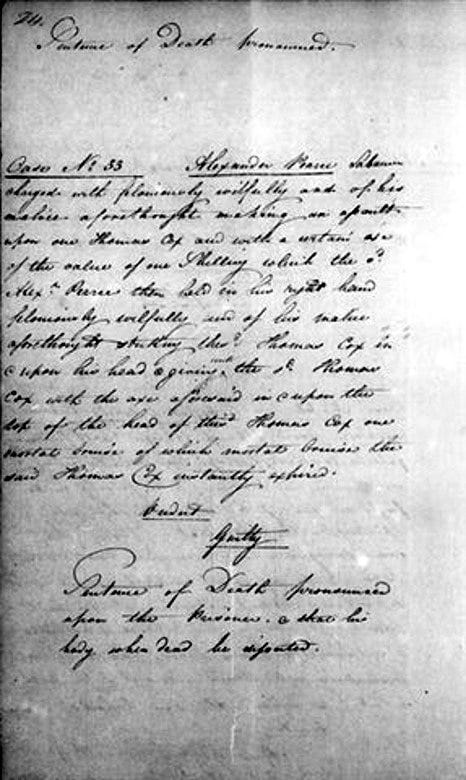 24.
Sentence of Death pronounced.
Case No 33 Alexander Pearce Labourer
charged with feloniously wilfully and of his
malice aforethought making an assault
upon one Thomas Cox and with a certain axe
of the value of one Shilling which the sd.
Alexr. Pearce then held in his right hand
feloniously wilfully and of his malice
aforethought striking the sd. Thomas Cox in
& upon his head & giving unto the sd. Thomas
Cox with the axe aforesaid in & upon the
top of the head of the sd. Thomas Cox one
mortal bruise of which mortal bruise the
said Thomas Cox instantly expired.
Verdict
Guilty
Sentence of Death pronounced
upon the Prisoner. & that his
body when dead be dissected.